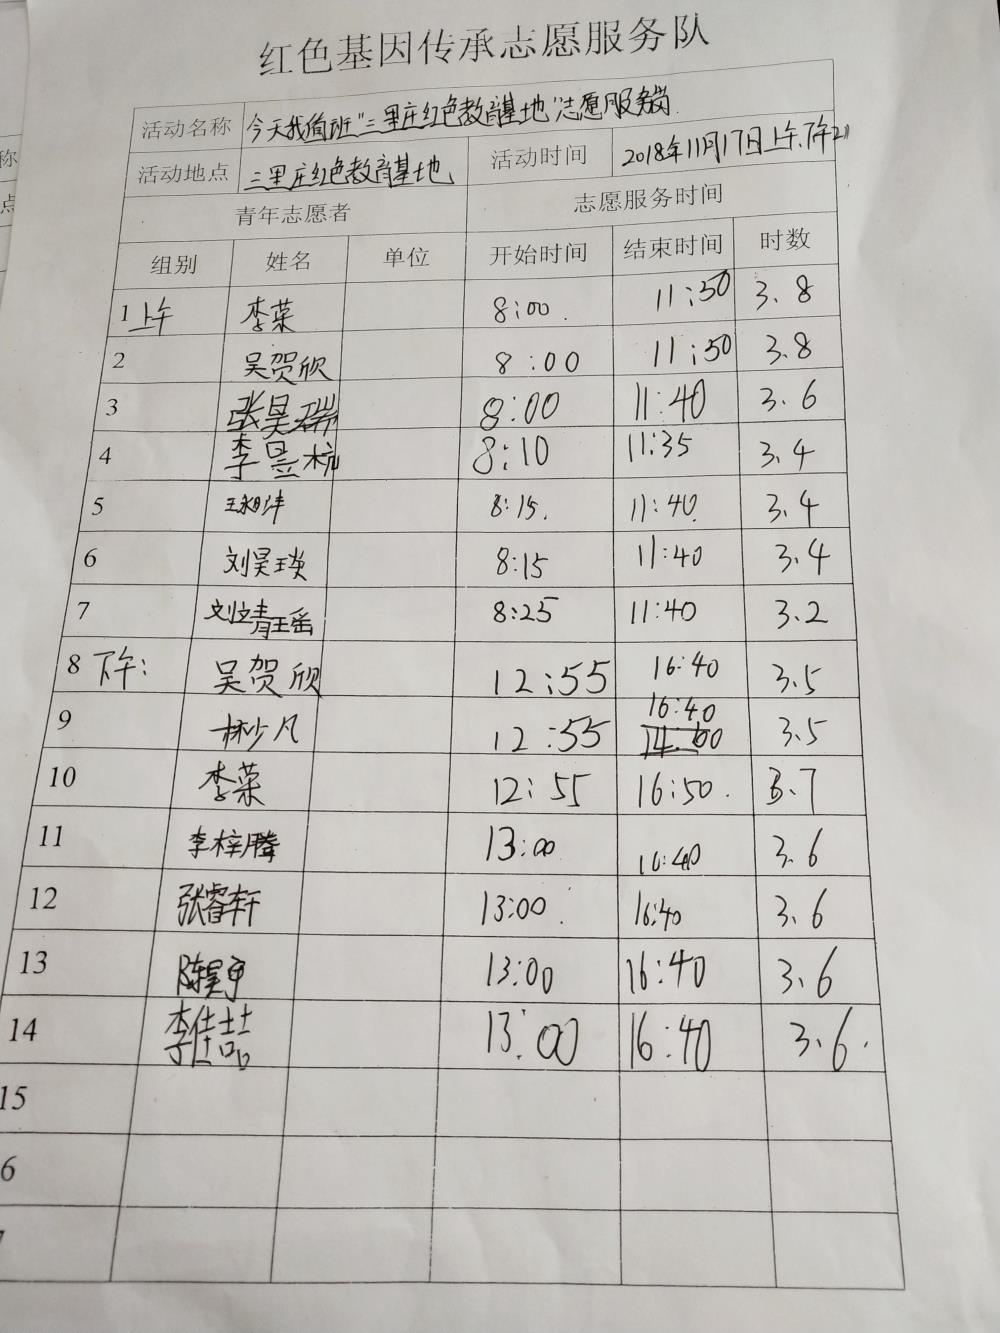 红色基因传承志愿服务队
活动名称 今天我值班"三里庄红色教育基地"志愿服务岗
活动地点 三里庄红色教育基地 活动时间 2018年11月17日上午、下午
青年志愿者 志愿服务时间
组别 姓名 单位 开始时间 结束时间 时数
1 上午 李荣 8:00 11:50 3.8
2 吴贺欣 8:00 11:50 3.8
3 张昊瑞 8:00 11:40 3.6
4 李昱杭 8:10 11:35 3.4
5 8:15 11:40 3.4
6 刘昊琰 8:15 11:40 3.4
7 刘婧瑶 8:25 11:40 3.2
8 下午: 吴贺欣 12:55 16:40 3.5
9 12:55 16:40 3.5
10 李荣 12:55 16:50 3.7
11 李梓腾 13:00 16:40 3.6
12 张睿轩 13:00 16:40 3.6
13 13:00 16:40 3.6
14 李佳喆 13:00 16:40 3.6
15
6
称
点